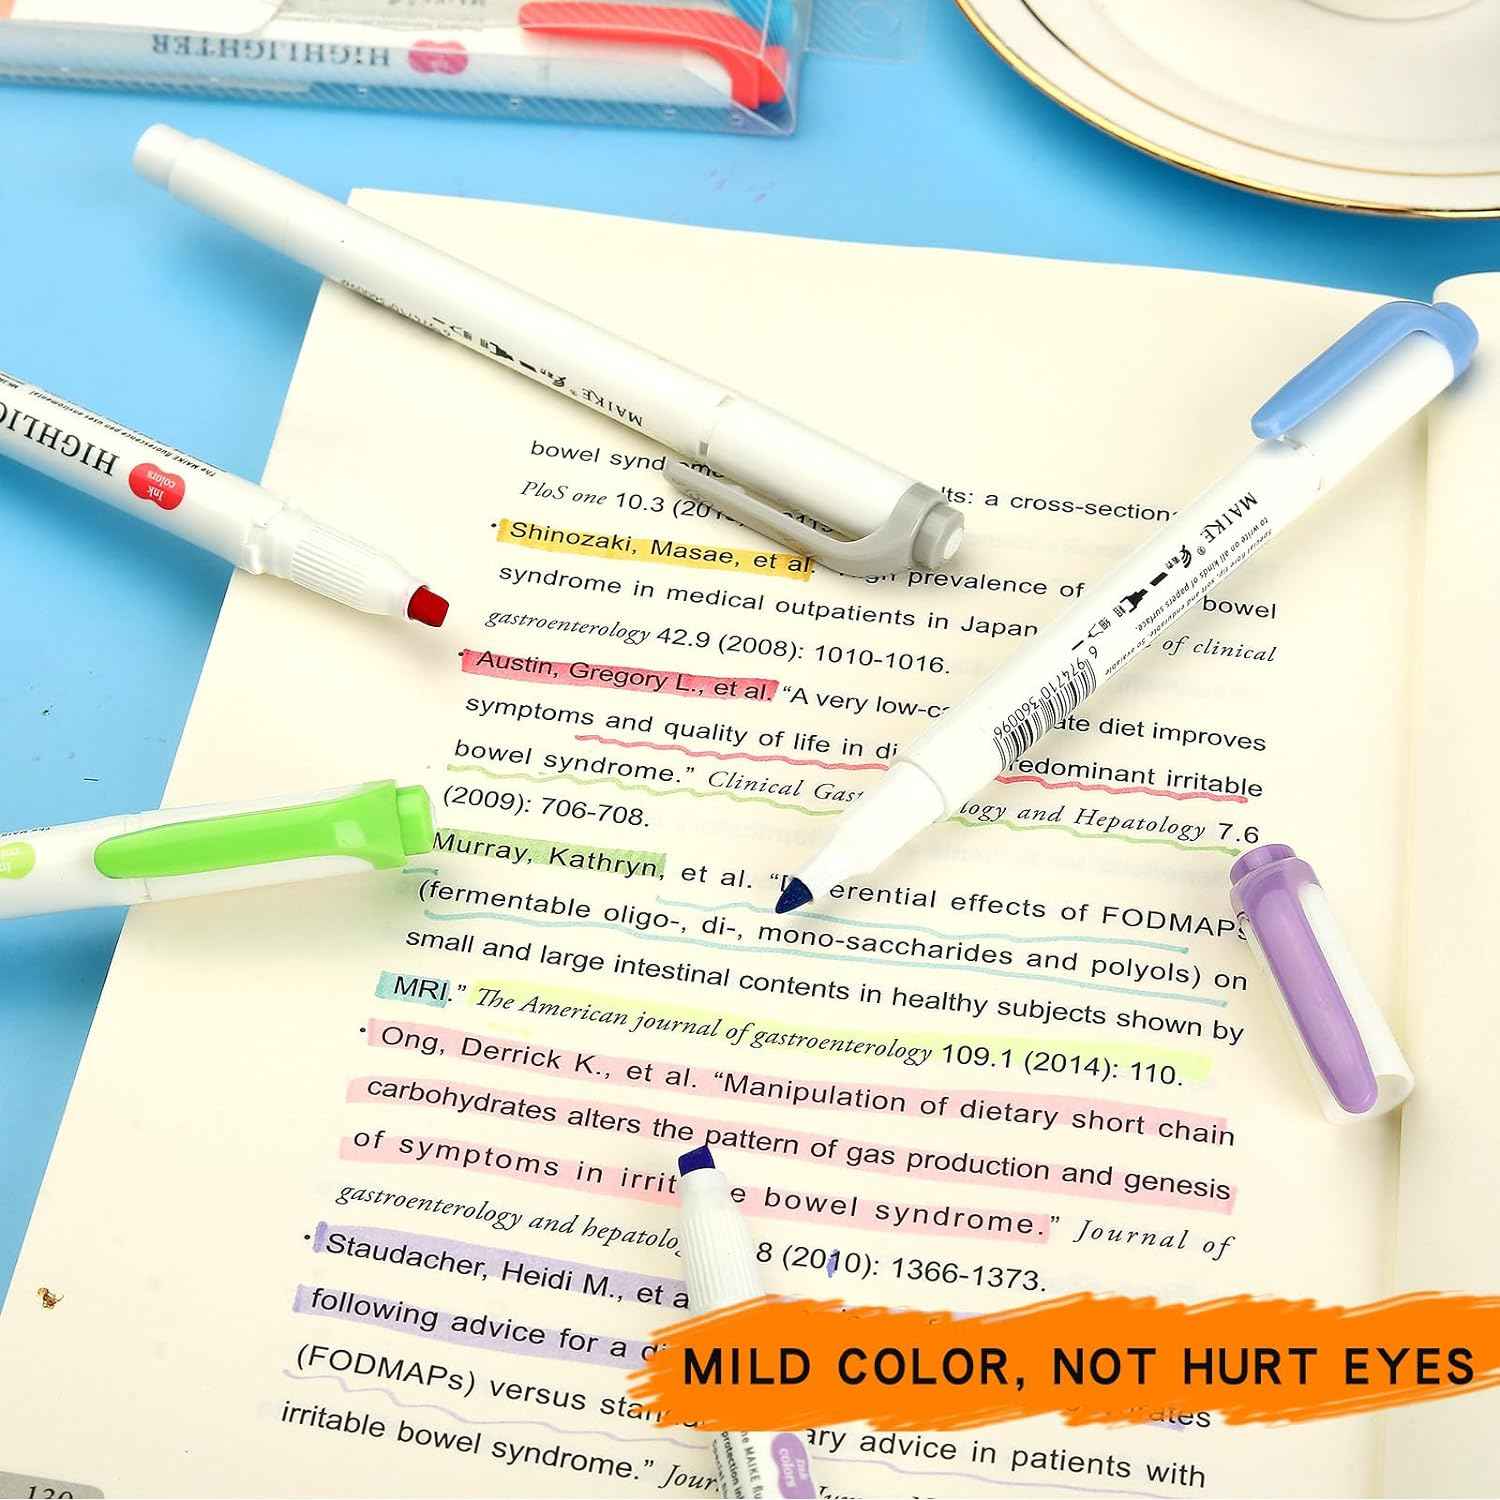 HIGHLIGHTER
MAIKE®
HIGHLIG
Ink
colors
The MAIKE fluorescence pen uses environmental
MAIKE®
Special fibre tip, soft and endurable. So available
to write on all kinds of papers surface.
粗
细
6 974710 360096
bowel synd lts: a cross-section
PloS one 10.3 (20
• Shinozaki, Masae, et al. prevalence of
syndrome in medical outpatients in Japan bowel
gastroenterology 42.9 (2008): 1010-1016. of clinical
• Austin, Gregory L., et al. “A very low-ca ate diet improves
symptoms and quality of life in di redominant irritable
bowel syndrome.” Clinical Gas logy and Hepatology 7.6
(2009): 706-708.
Murray, Kathryn, et al. “D erential effects of FODMAPS
(fermentable oligo-, di-, mono-saccharides and polyols) on
small and large intestinal contents in healthy subjects shown by
MRI.” The American journal of gastroenterology 109.1 (2014): 110.
• Ong, Derrick K., et al. “Manipulation of dietary short chain
carbohydrates alters the pattern of gas production and genesis
of symptoms in irrit e bowel syndrome.” Journal of
gastroenterology and hepatolo 8 (2010): 1366-1373.
• Staudacher, Heidi M., et a
following advice for a d
(FODMAPs) versus stan rates
irritable bowel syndrome.” Jour ary advice in patients with
MILD COLOR, NOT HURT EYES
Ink
colors
130